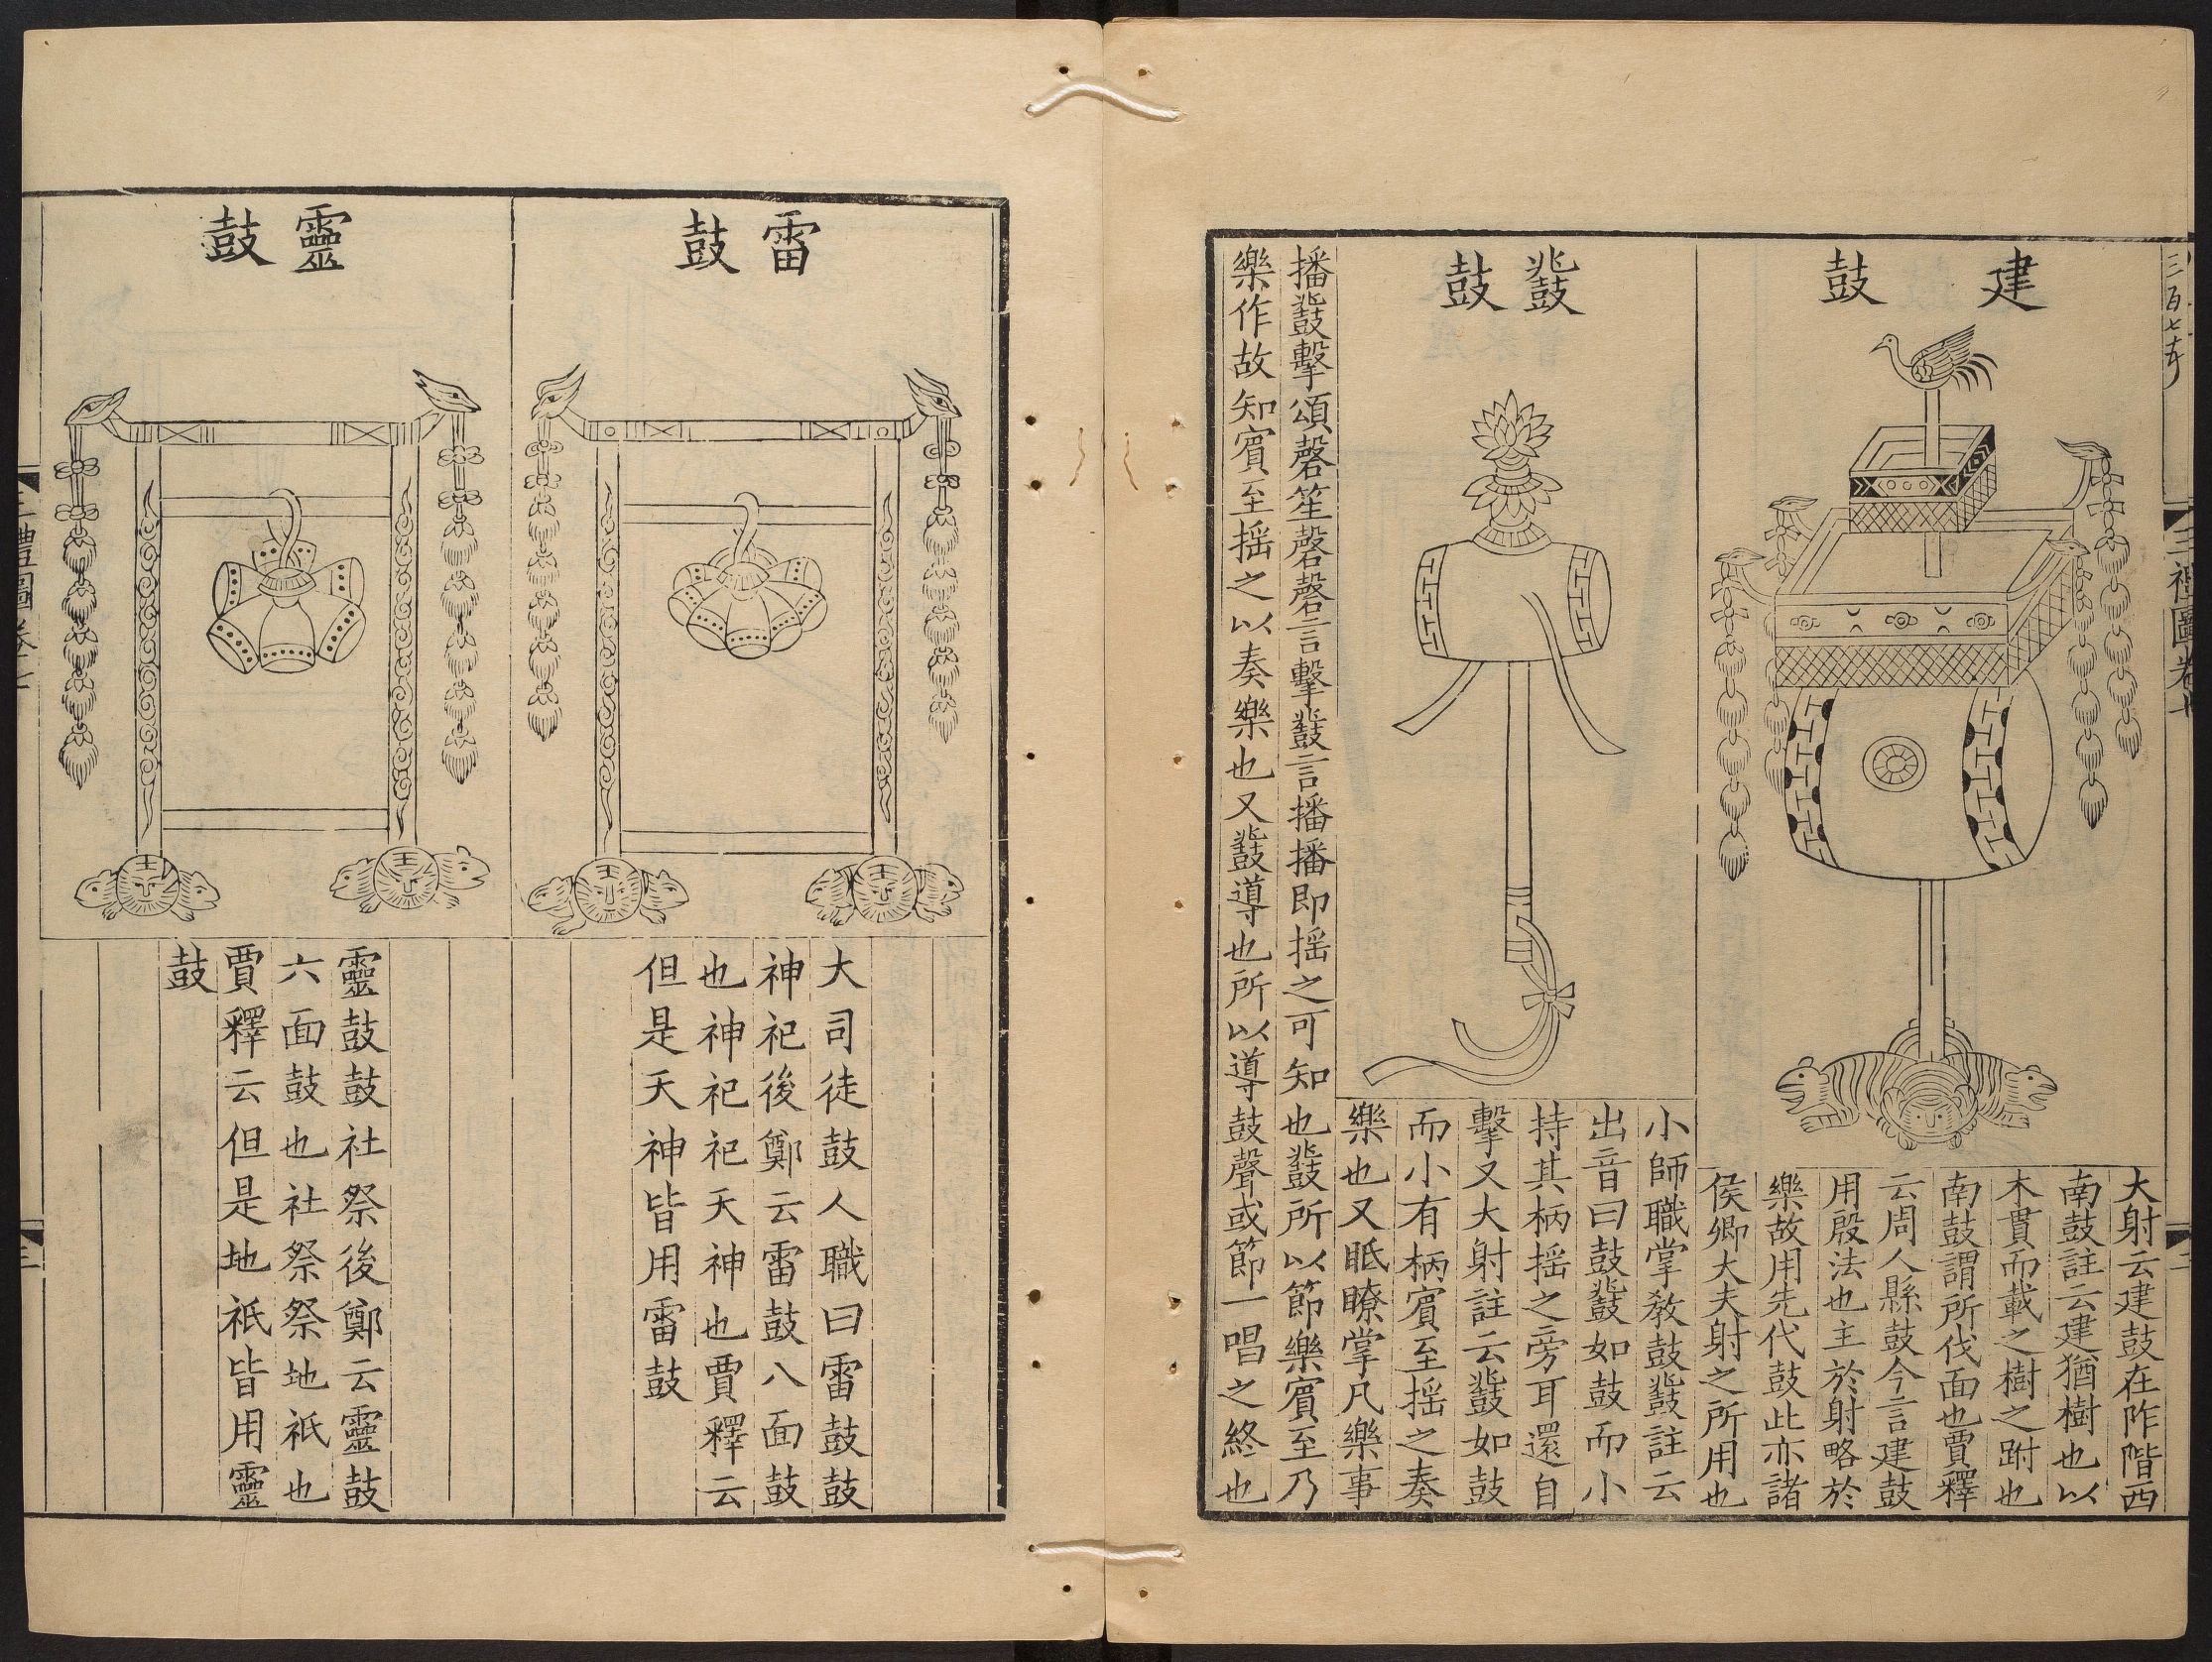 三禮圖卷七
二
建鼓
大射云建鼓在阼階西
南鼓註云建猶樹也以
木貫而載之樹之跗也
南鼓謂所伐面也賈釋
云周人縣鼓今言建鼓
用殷法也主於射略於
樂故用先代鼓此亦諸
侯卿大夫射之所用也
鼗鼓
小師職掌教鼓鼗註云
出音曰鼓鼗如鼓而小
持其柄搖之旁耳還自
擊又大射註云鼗如鼓
而小有柄賓至搖之奏
樂也又眡瞭掌凡樂事
播鼗擊頌磬笙磬磬言擊鼗言播播即搖之可知也鼗所以節樂賓至乃
樂作故知賓至搖之以奏樂也又鼗導也所以導鼓聲或節一唱之終也
雷鼓
大司徒鼓人職曰雷鼓鼓
神祀後鄭云雷鼓八面鼓
也神祀祀天神也賈釋云
但是天神皆用雷鼓
靈鼓
靈鼓鼓社祭後鄭云靈鼓
六面鼓也社祭祭地祇也
賈釋云但是地祇皆用靈
鼓
三禮圖卷七